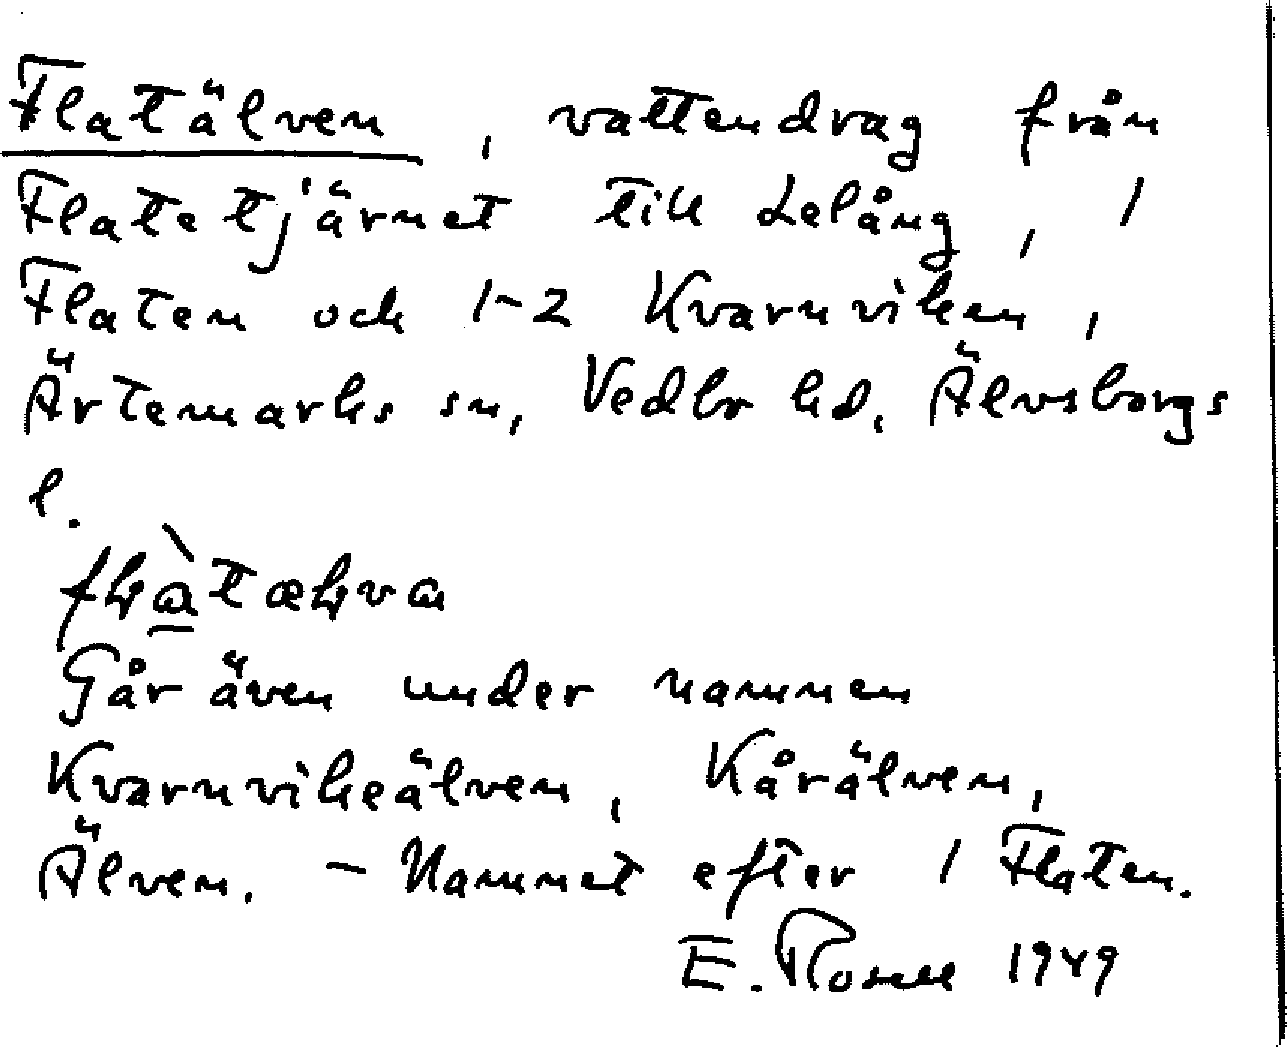 Flatälven, vattendrag från
Flatetjärnet till Lelång, 1
Flaten och 1-2 Kvarnviken,
Ärtemarks sn, Vedbo hd, Älvsborgs
l.
Går även under namnen
Kvarnvikeälven, Kårälven,
Älven. - Namnet efter 1 Flaten.
E. Rosell 1949